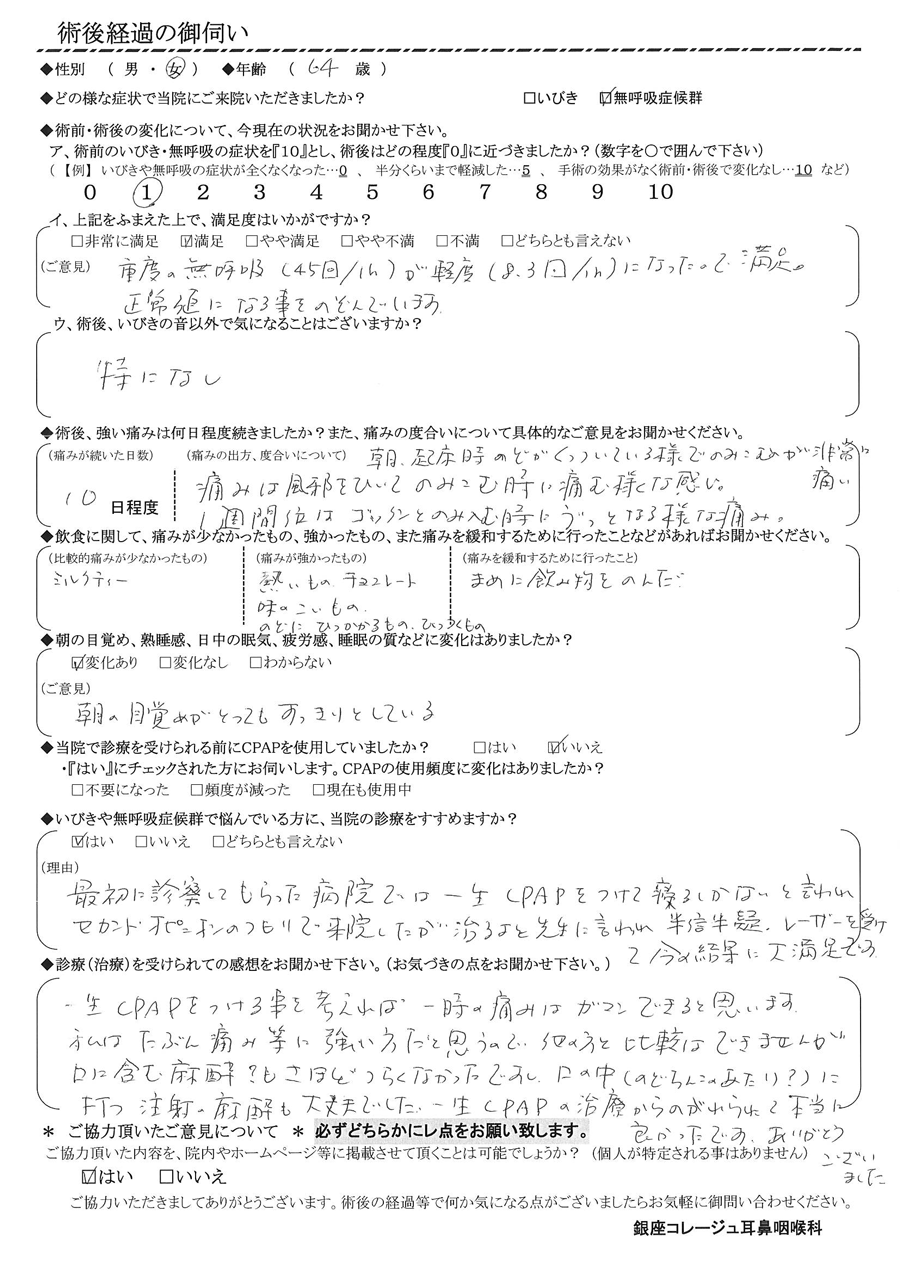 術後経過の御伺い
◆性別 （ 男 ・ 女 ） ◆年齢 （ 64 歳 ）
◆どの様な症状で当院にご来院いただきましたか？ □いびき ☑無呼吸症候群
◆術前・術後の変化について、今現在の状況をお聞かせ下さい。
ア、術前のいびき・無呼吸の症状を『10』とし、術後はどの程度『0』に近づきましたか？（数字を〇で囲んで下さい）
（【例】 いびきや無呼吸の症状が全くなくなった…0 、 半分くらいまで軽減した…5 、 手術の効果がなく術前・術後で変化なし…10 など）
0 1 2 3 4 5 6 7 8 9 10
イ、上記をふまえた上で、満足度はいかがですか？
□非常に満足 ☑満足 □やや満足 □やや不満 □不満 □どちらとも言えない
（ご意見） 重度の無呼吸（45回/1h）が軽度（8.3回/1h）になったので満足。
正常値になる事をのぞんでいます
ウ、術後、いびきの音以外で気になることはございますか？
特になし
◆術後、強い痛みは何日程度続きましたか？また、痛みの度合いについて具体的なご意見をお聞かせください。
（痛みが続いた日数） （痛みの出方、度合いについて） 朝、起床時のどがくっついている様でのみこむのが非常に
痛い
10 日程度 痛みは風邪をひいてのみこむ時に痛む様な感じ。
1週間位はゴックンとのみ込む時にうっとなる様な痛み。
◆飲食に関して、痛みが少なかったもの、強かったもの、また痛みを緩和するために行ったことなどがあればお聞かせください。
（比較的痛みが少なかったもの） （痛みが強かったもの） （痛みを緩和するために行ったこと）
ミルクティー 熱いもの、チョコレート まめに飲み物をのんだ
味のこいもの、
のどにひっかかるもの、ひっつくもの
◆朝の目覚め、熟睡感、日中の眠気、疲労感、睡眠の質などに変化はありましたか？
☑変化あり □変化なし □わからない
（ご意見）
朝の目覚めがとってもすっきりとしている
◆当院で診療を受けられる前にCPAPを使用していましたか？ □はい ☑いいえ
・『はい』にチェックされた方にお伺いします。CPAPの使用頻度に変化はありましたか？
□不要になった □頻度が減った □現在も使用中
◆いびきや無呼吸症候群で悩んでいる方に、当院の診療をすすめますか？
☑はい □いいえ □どちらとも言えない
（理由）
最初に診察してもらった病院では一生CPAPをつけて寝るしかないと言われ
セカンドオピニオンのつもりで来院したが治るよと先生に言われ半信半疑、レーザーを受け
て今の結果に大満足です
◆診療（治療）を受けられての感想をお聞かせ下さい。（お気づきの点をお聞かせ下さい。）
一生CPAPをつける事を考えれば一時の痛みはガマンできると思います
私はたぶん痛み等に強い方だと思うので他の方と比較はできませんが
口に含む麻酔？もさほどつらくなかったですし、口の中（のどちんこのあたり？）に
打つ注射の麻酔も大丈夫でした。一生CPAPの治療からのがれられて本当に
良かったです。ありがとう
ござい
ました
＊ ご協力頂いたご意見について ＊ 必ずどちらかにレ点をお願い致します。
ご協力頂いた内容を、院内やホームページ等に掲載させて頂くことは可能でしょうか？ （個人が特定される事はありません）
☑はい □いいえ
ご協力いただきましてありがとうございます。術後の経過等で何か気になる点がございましたらお気軽に御問い合わせください。
銀座コレージュ耳鼻咽喉科